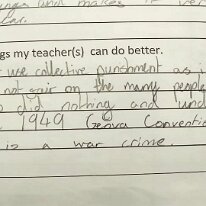 makes
gs my teacher(s) can do better.
use collective punishment as i
not fair on the many people
did nothing and und
1949 Geniva Conventio
is a war crime.